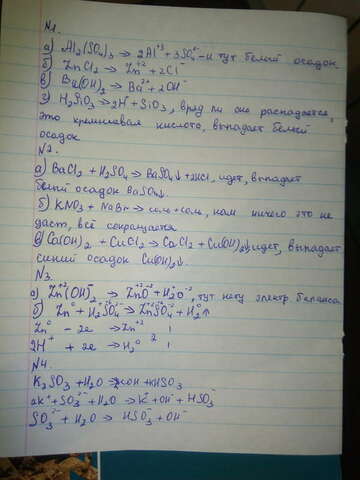 N1.
а) Al₂(SO₄)₃ → 2Al⁺³ + 3SO₄²⁻ - и тут белый осадок
б) ZnCl₂ → Zn⁺² + 2Cl⁻
в) Ba(OH)₂ → Ba²⁺ + 2OH⁻
г) H₂SiO₃ → 2H⁺ + SiO₃, вряд ли оно распадается,
это кремниевая кислота, выпадает белый
осадок
N2.
а) BaCl₂ + H₂SO₄ → BaSO₄↓ + 2HCl, идет, выпадает
белый осадок BaSO₄↓.
б) KNO₃ + NaBr → соль + соль, нам ничего это не
даст, всё сокращается
в) Ca(OH)₂ + CuCl₂ → CaCl₂ + Cu(OH)₂↓, идет, выпадает
синий осадок Cu(OH)₂↓.
N3.
а) Zn⁺²(OH)⁻₂ → Zn⁺²O⁻² + H₂⁺O⁻², тут нету электр. баланса
б) Zn⁰ + H₂⁺S⁺⁶O₄⁻² → Zn⁺²S⁺⁶O₄⁻² + H₂⁰↑
Zn⁰ - 2e → Zn⁺² 1
2H⁺ + 2e → H₂⁰ 2 1
N4.
K₂SO₃ + H₂O → KOH + KHSO₃
2K⁺ + SO₃²⁻ + H₂O → K⁺ + OH⁻ + HSO₃⁻
SO₃²⁻ + H₂O → HSO₃⁻ + OH⁻